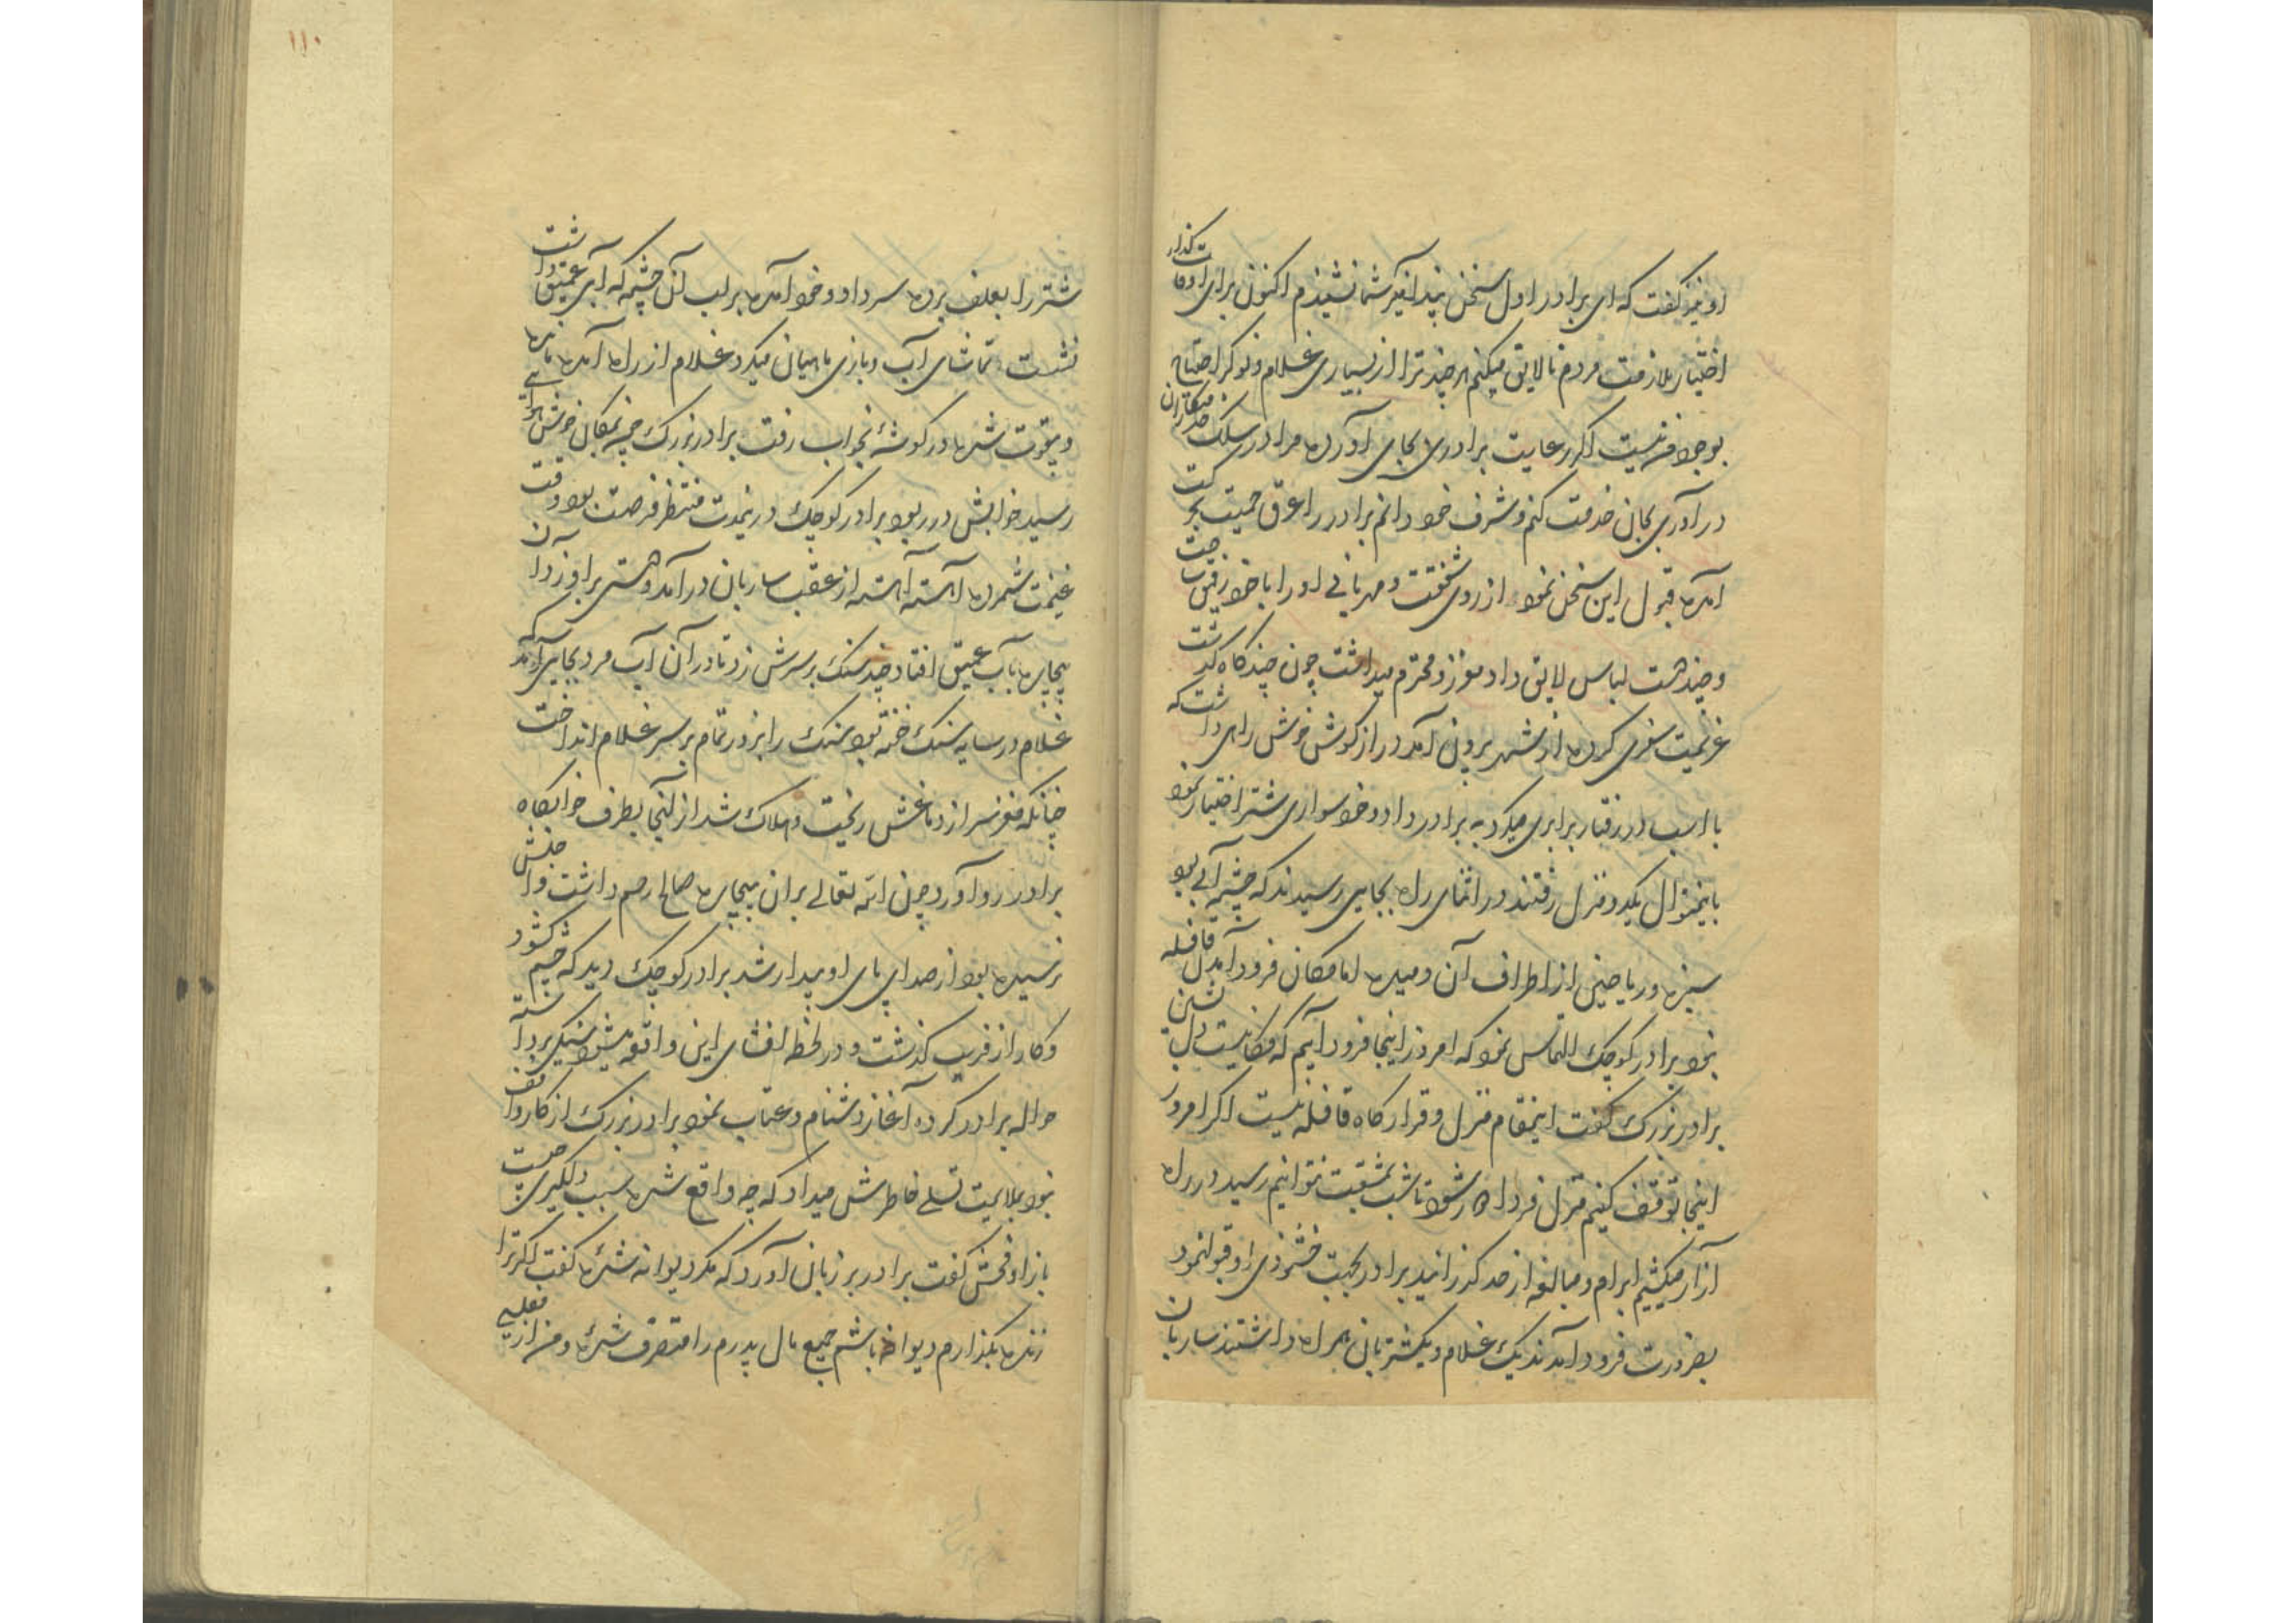 او نیز گفت که ای برادر اول سخن پند آمیز شما نشنیدم اکنون برای اوقات گذار
اختیار ملازمت مردم نالایق میکنم هر چند ترا از بسیاری غلام و نوکر احتیاج
بوجود من نیست اگر رعایت برادری بجای آورده مرا در سلک خدمتکاران
در آوری بجان خدمت کنم و شرف خود دانم برادر را عرق حمیت بحرکت
آمده قبول این سخن نمود از روی شفقت و مهربانی او را با خود رفیق ساخت
و چند دست لباس لایق داد معزز و محترم میداشت چون چند گاه گذشت
عزیمت سفری کرده از شهر برون آمد دراز گوش خوش راهی داشت که
با اسب در رفتار برابری میکرد به برادر داد و خود سواری شتر اختیار نمود
باینمنوال یکدو منزل رفتند در اثنای راه بجایی رسیدند که چشمه آبی بود
سبزه و ریاحین از اطراف آن دمیده اما مکان فرود آمدن قافله
نبود برادر کوچک التماس نمود که امروز اینجا فرود آییم که مکانیست دل نشین
برادر بزرگ گفت اینمقام منزل و قرارگاه قافله نیست اگر امروز
اینجا توقف کنیم منزل فردا دور شود تا شب بمشقت نتوانیم رسید در راه
آزار میکشیم ابرام و مبالغه از حد گذرانید برادر بجهت خشنودی او قبول نمود
بضرورت فرود آمدند یک غلام و یکشتربان همراه داشتند ساربان
۱۱۰
شتر را بعلف برده سر داد و خود آمده بر لب آن چشمه که آبی عمیق داشت
نشست تماشای آب و بازی ماهیان میکرد غلام از راه آمده مانده
و بیقوت شده در گوشهٔ بخواب رفت برادر بزرگ چه بمکان خوش هوایی
رسید خوابش در ربود برادر کوچک درینمدت منتظر فرصت بود وقت
غنیمت شمرده آهسته آهسته از عقب ساربان در آمد و دستی برو زد آن
بیچاره بآب عمیق افتاد چند سنک بر سرش زد تا در آن آب مرد بجایی آمد که
غلام در سایه سنک خفته بود سنک را بزور تمام بر سر غلام انداخت
چنانکه مغز سر از دماغش ریخت و هلاک شد از آنجا بطرف خوابگاه
برادر رو آورد چون الله تعالی بران بیچاره صالح رحم داشت و اجلش
نرسیده بود از صدای پای او بیدار شد برادر کوچک دید که چشم کشود
و کار از فریب گذشت و در لحظه افشای این واقعه میشود سنگی برداشته
حواله برادر کرده آغاز دشنام و عتاب نمود برادر بزرگ از کار واقف
نبود بملایمت تسلی خاطرش میداد که چه واقع شده سبب دلگیری چیست
باز او فحش گفت برادر بر زبان آورد که مگر دیوانه شدهٔ گفت اگر ترا
زنده بگذارم دیوانه باشم جمیع مال پدرم را متصرف شدهٔ و من از بی